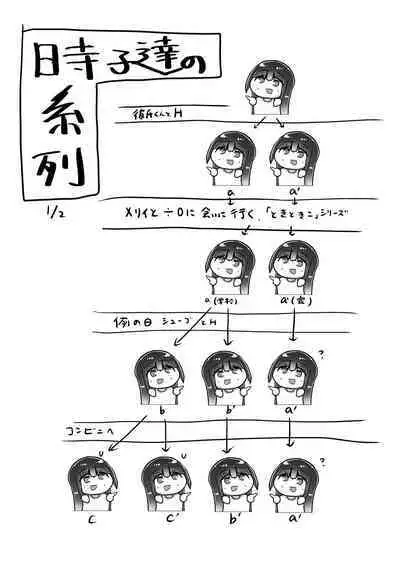 時子達の
系列
1/2
彼氏くんとH
a
a'
メリイと÷0に会いに行く、「ときときこ」シリーズ
a
a'
例の日 シューブとH
b
b'
a'
?
コンビニへ
c
c'
b'
a'
?